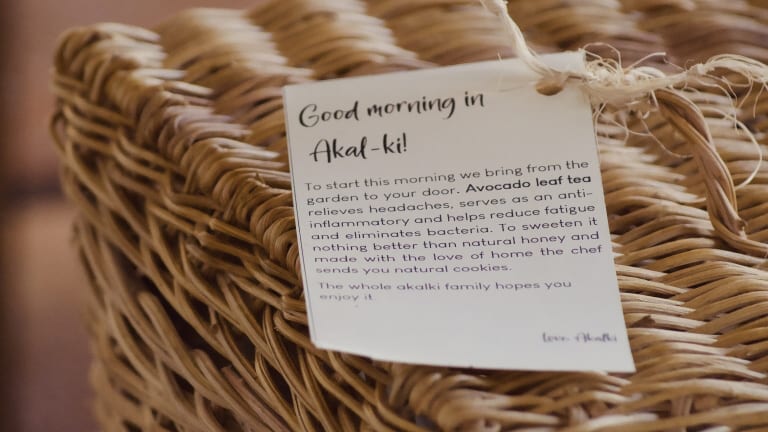 Good morning in
Akal-ki!
To start this morning we bring from the
garden to your door. Avocado leaf tea
relieves headaches, serves as an anti-
inflammatory and helps reduce fatigue
and eliminates bacteria. To sweeten it
nothing better than natural honey and
made with the love of home the chef
sends you natural cookies.
The whole akalki family hopes you
enjoy it.
love, Akalki